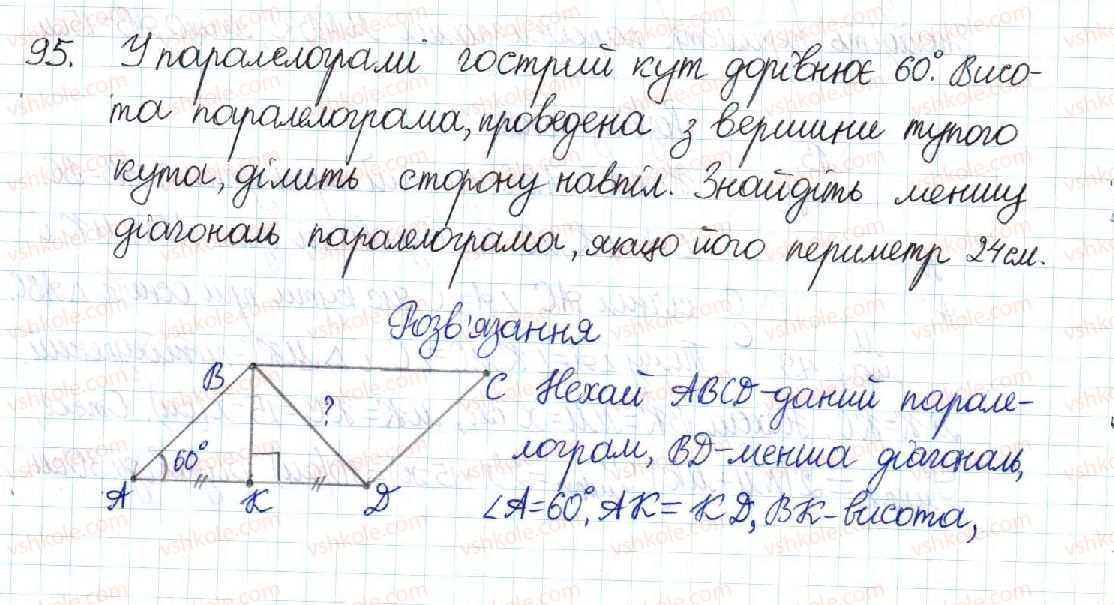 95. У паралелограмі гострий кут дорівнює 60°. Висо-
та паралелограма, проведена з вершини тупого
кута, ділить сторону навпіл. Знайдіть меншу
діагональ паралелограма, якщо його периметр 24 см.
Розв'язання
B
C
?
60°
A
K
D
Нехай ABCD - даний парале-
лограм, BD - менша діагональ,
∠A = 60°, AK = KD, BK - висота,
vshkole.com